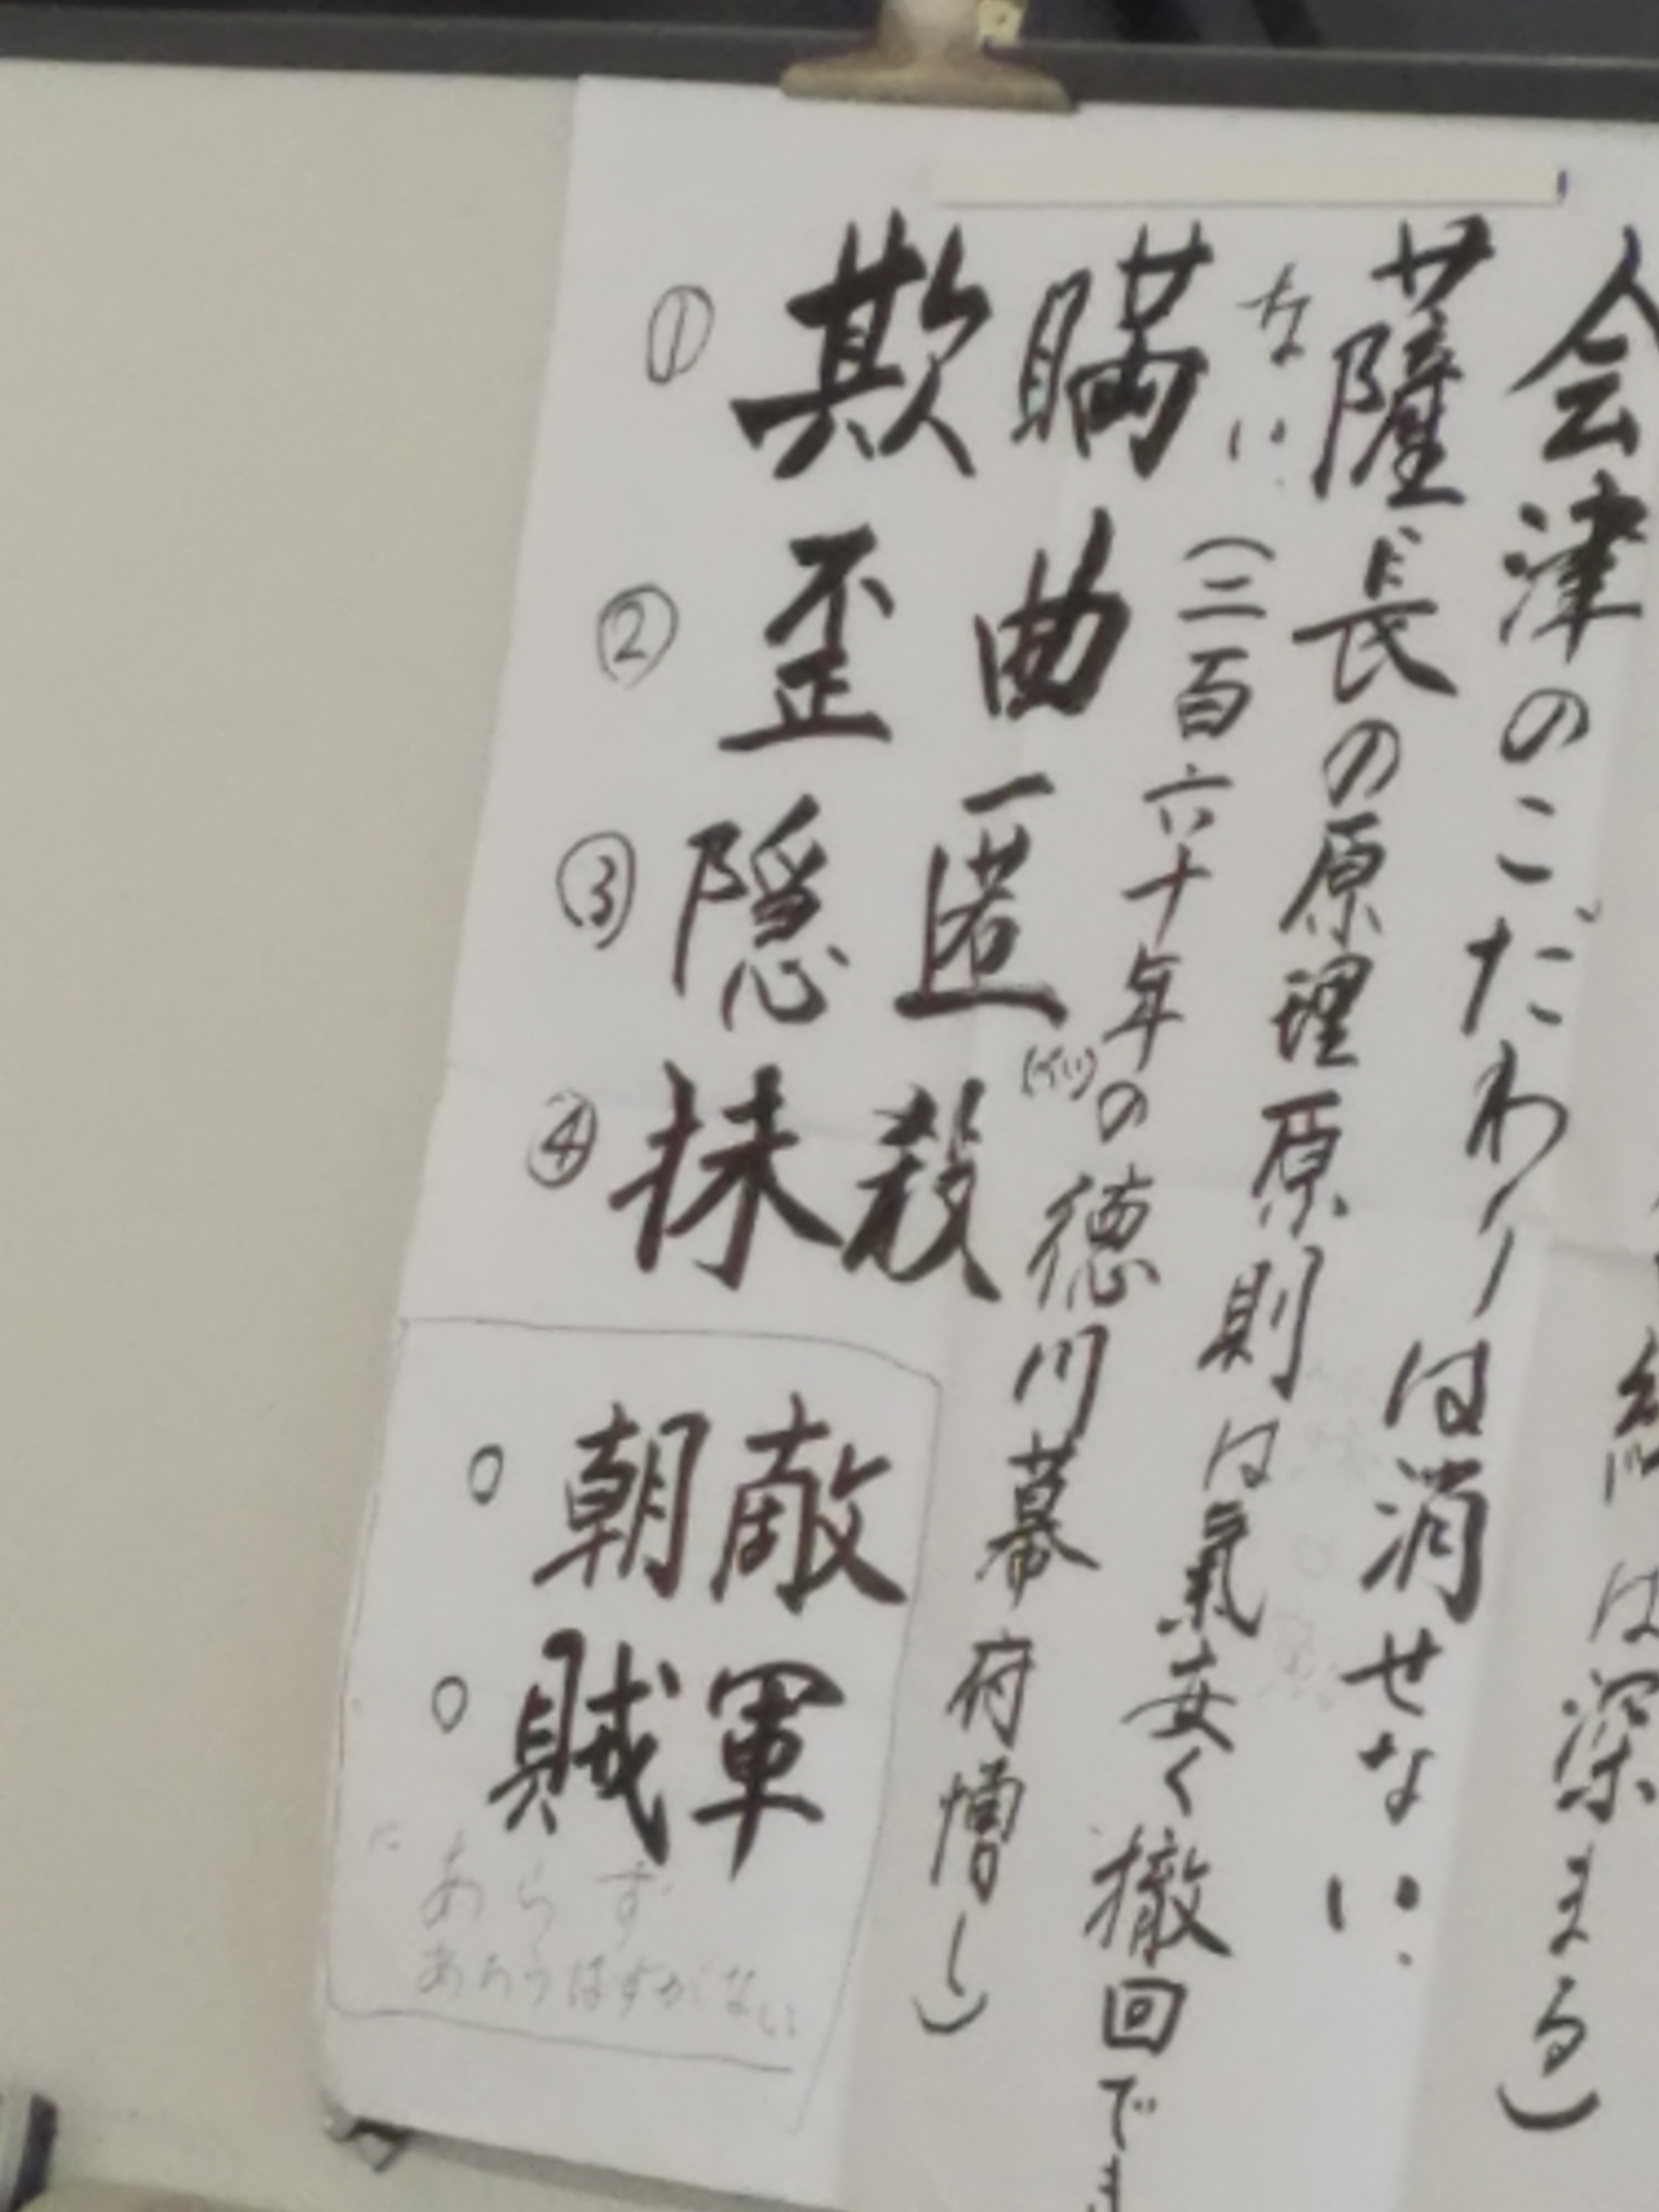 は深まる)
会津のこだわりは消せない
薩長の原理原則は氣安く撤回でき
ない (二百六十年の徳川幕府憎し)
① 欺瞞
② 歪曲
③ 隠匿
④ 抹殺
○ 朝敵
○ 賊軍
に
あらず
あろうはずがない